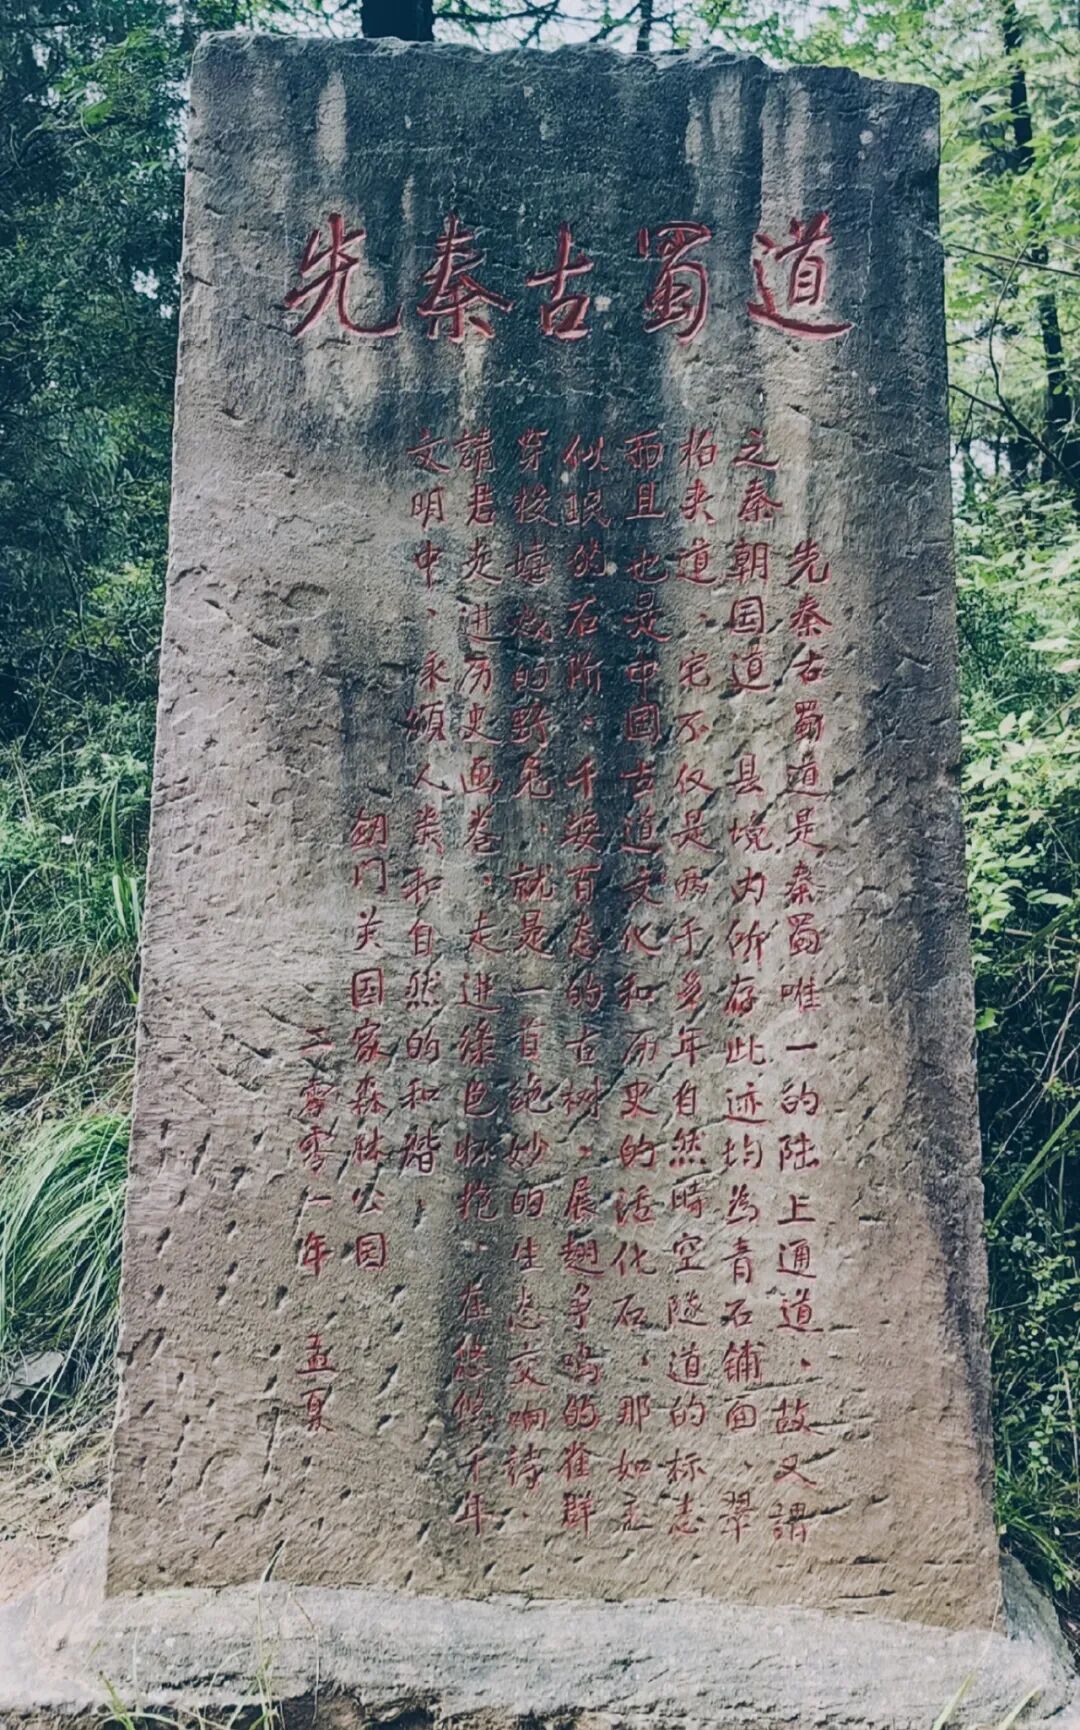 先秦古蜀道
先秦古蜀道是秦蜀唯一的陆上通道、故又謂
之秦朝国道 县境内所存此迹均為青石铺面、翠
柏夹道、它不仅是两千多年自然時空隧道的标志
而且也是中国古道文化和历史的活化石、那如
似的石阶、千姿百态的古树、展翅争鸣的雀群
穿梭嬉戏的野兔、就是一首绝妙的生态交响诗、
請君走进历史画卷、走进绿色怀抱、在悠悠千年
文明中、永頌人类和自然的和諧、
剑门关国家森林公园
二零零一年 孟夏